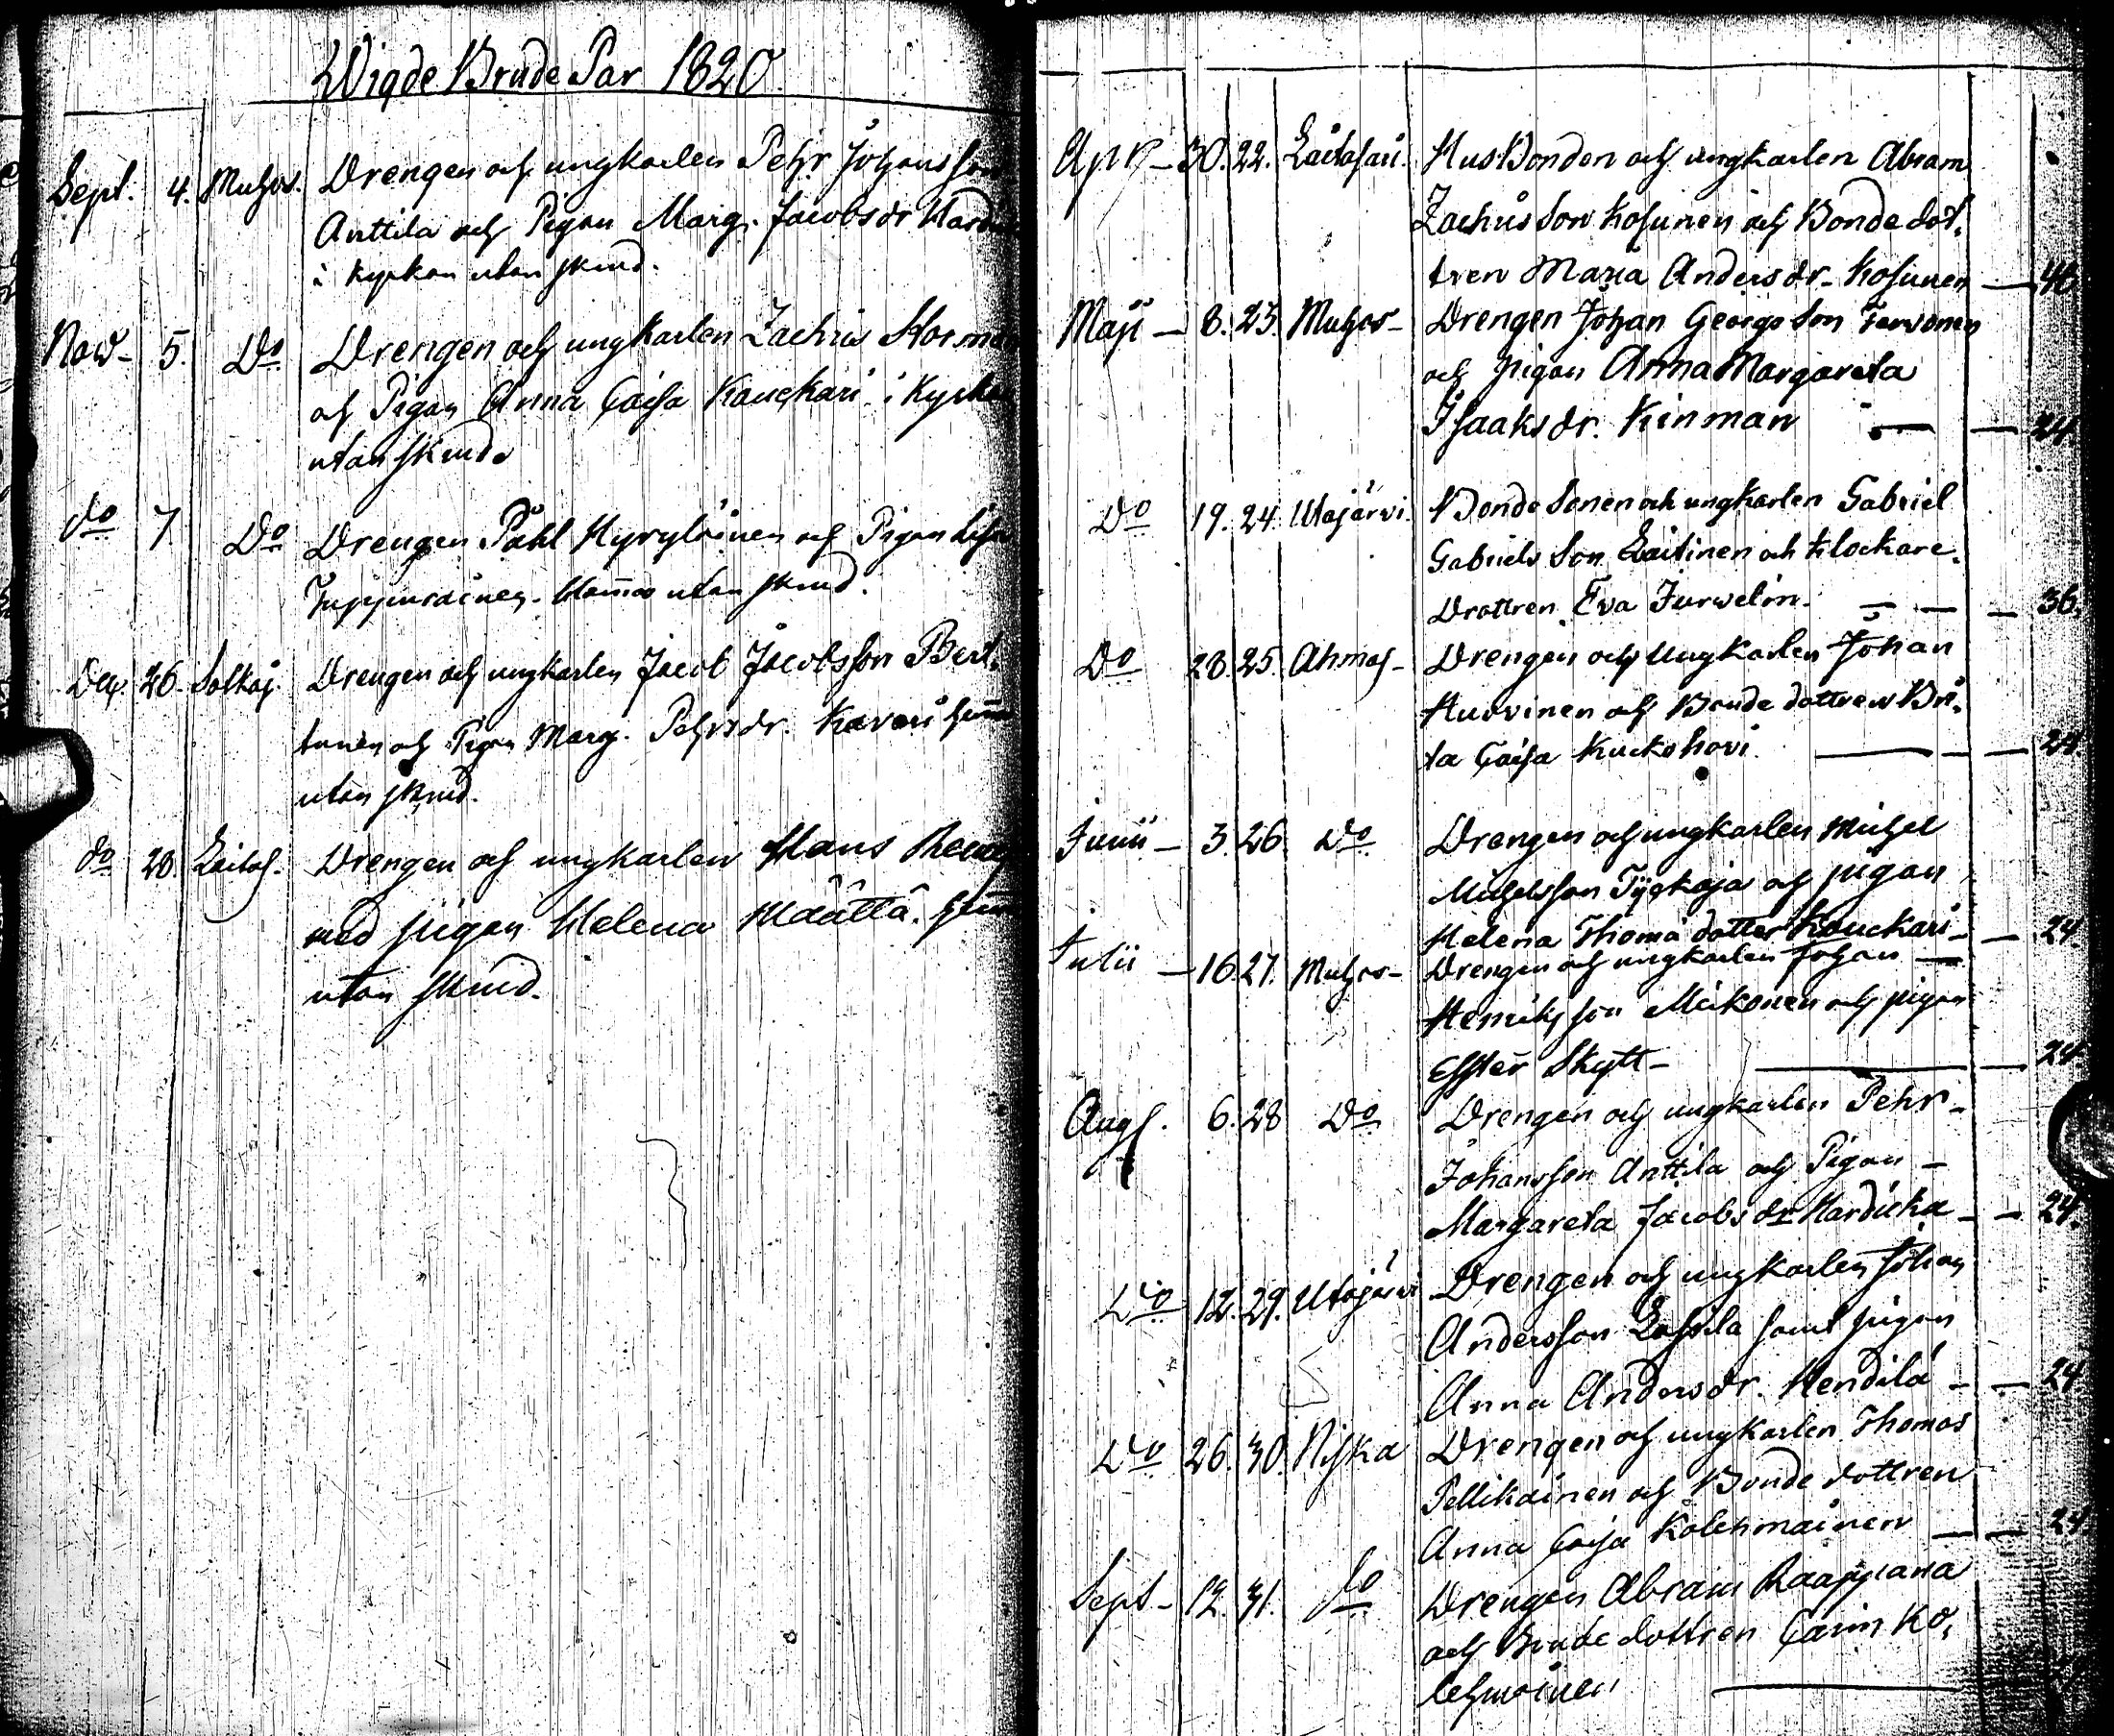 Wigde Brude Par 1820.
Sept. 4. Muhos. Drengen och ungkarlen Pehr Johansson
Anttila och Pigan Marg. Jacobsdr
i kyrkan utan skrud.
Now - 5. Do Drengen och ungkarlen Zachris
och Pigan Anna Caisa Kauckari i Kyrkan
utan skrud.
do 7. Do Drengen Påhl Hyryläinen och Pigan Lisa
utan skrud.
Dec. 26. Sotkaj. Drengen och ungkarlen Jacob Jacobsson Bert,
tunen och Pigan Marg. Pehrsdr.
utan skrud.
do 28. Laitas. Drengen och ungkarlen Hans
med pigan Helena Määttä.
utan skrud.
Apr - 30. 22. Laitasari. Husbonden och ungkarlen Abram
Zachrisson Kosunen och Bonde dot,
tren Maria Andersdr - Kosunen — 40
Maji - 8. 23. Muhos - Drengen Johan Georgsson Tervonen
och pigan Anna Margareta
Isaaksdr. Kinman — — 24
Do 19. 24. Utajärvi. Bonde Sonen och ungkarlen Gabriel
Gabriels Son Laitinen och klockare
Drottren Eva Jurvelin. — — 36.
Do 28. 25. Ahmas - Drengen och Ungkarlen Johan
Hurvinen och Bonde dottren Bri,
ta Caisa Kuckohovi. — — 24
Junii - 3. 26. Do Drengen och ungkarlen Michel
Michelsson Tyckäjä och pigan
Helena Thomä dotter Kauckari — — 24.
Julii — 16. 27. Muhos - Drengen och ungkarlen Johan —
Henriksson Mickonen och pigan
Esster Skytt - — 24.
Augs. 6. 28 Do Drengen och ungkarlen Pehr -
Johansson Anttila och Pigan —
Margareta Jacobsdr Hardicka — — 24.
Do 12. 29. Utajärvi Drengen och ungkarlen Johan
Andersson Lassila samt pigan
Anna Andersdr. Hendilä — — 24
Do 26. 30. Niska Drengen och ungkarlen Thomas
Pellikainen och Bonde dottren
Anna Caisa Kålehmainen — — 24
Sept - 12. 31. do Drengen Abram Raappana
och Bonde dottren Carin Ko,
lehmainen —